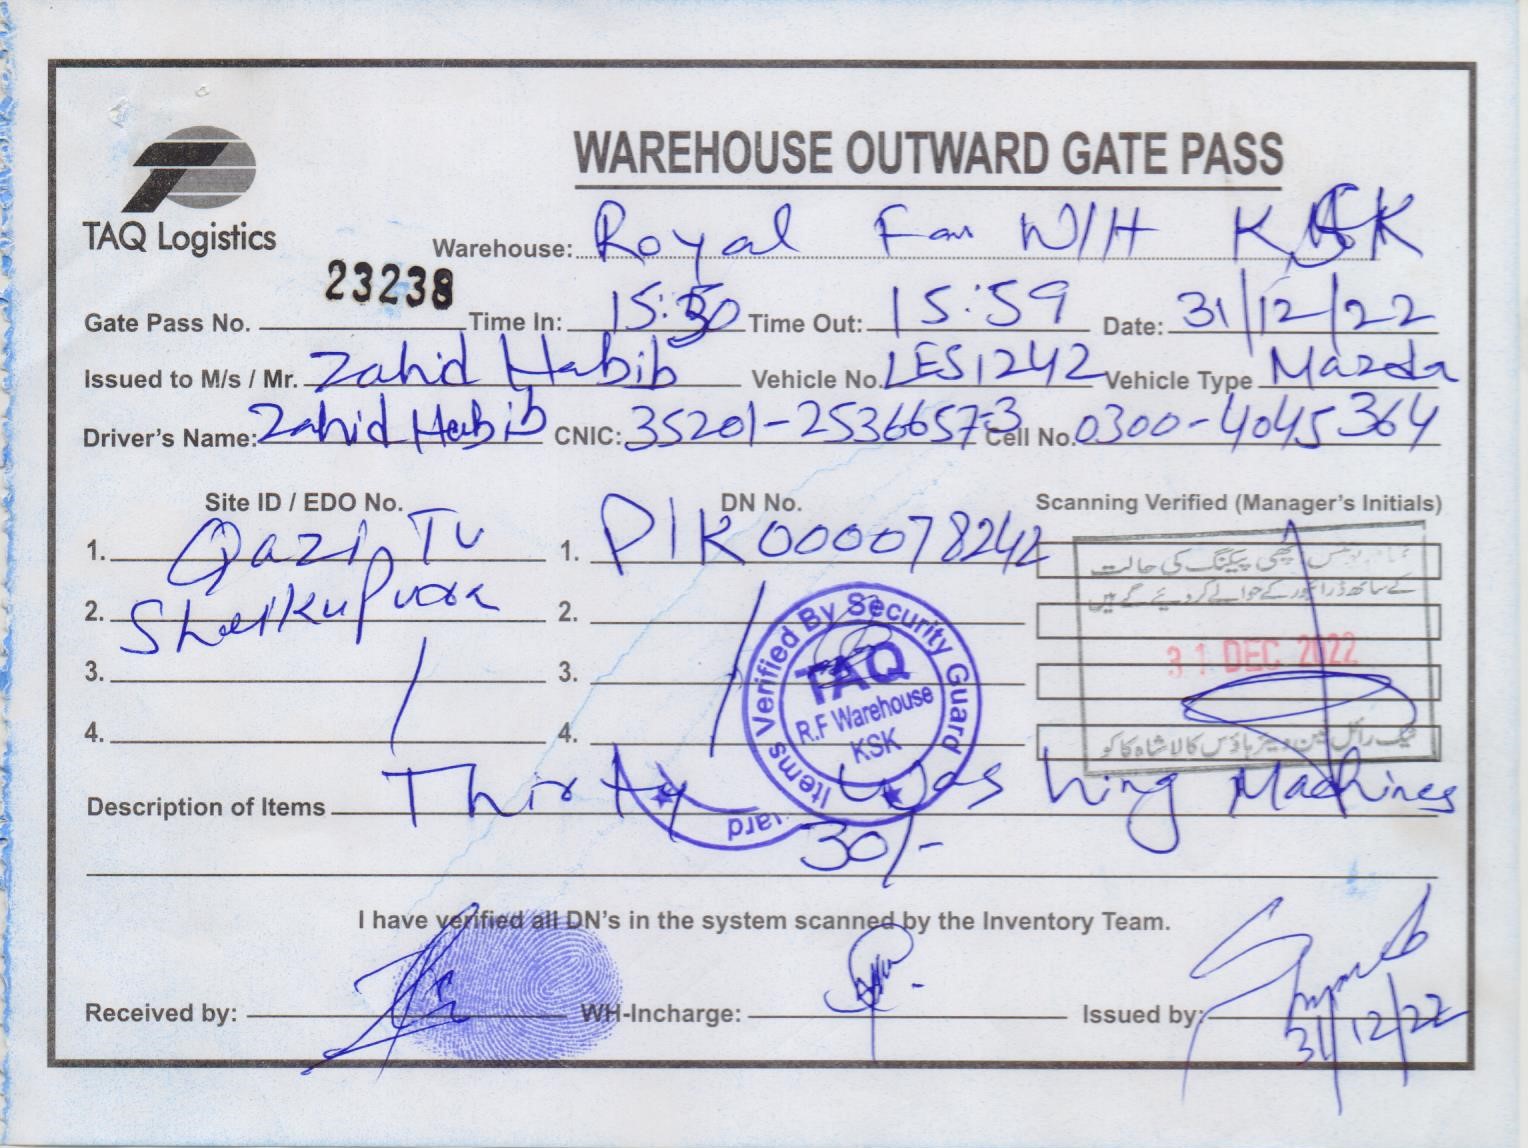 WAREHOUSE OUTWARD GATE PASS
TAQ Logistics
Warehouse: Royal Fan W/H KSK
Gate Pass No. 23238 Time In: 15:50 Time Out: 15:59 Date: 31/12/22
Issued to M/s / Mr. Zahid Habib Vehicle No. LES1242 Vehicle Type Mazda
Driver's Name: Zahid Habib CNIC: 35201-2536657-3 Cell No. 0300-4045364
Site ID / EDO No. DN No. Scanning Verified (Manager's Initials)
1. Qazi TV 1. PIK0000078242
2. Sheikupura 2.
3. 3.
4. 4.
اچھی پیکنگ کی حالت
کے ساتھ ڈرائیور کے حوالے کر دیئے گئے ہیں
31 DEC 2022
ٹیک رائل فین ویئر ہاؤس کالا شاہ کاکو
Items Verified By Security Guard
TAQ
R.F Warehouse
KSK
uard
Description of Items Thirty Washing Machines
30/-
I have verified all DN's in the system scanned by the Inventory Team.
Received by: WH-Incharge: Issued by:
31/12/22